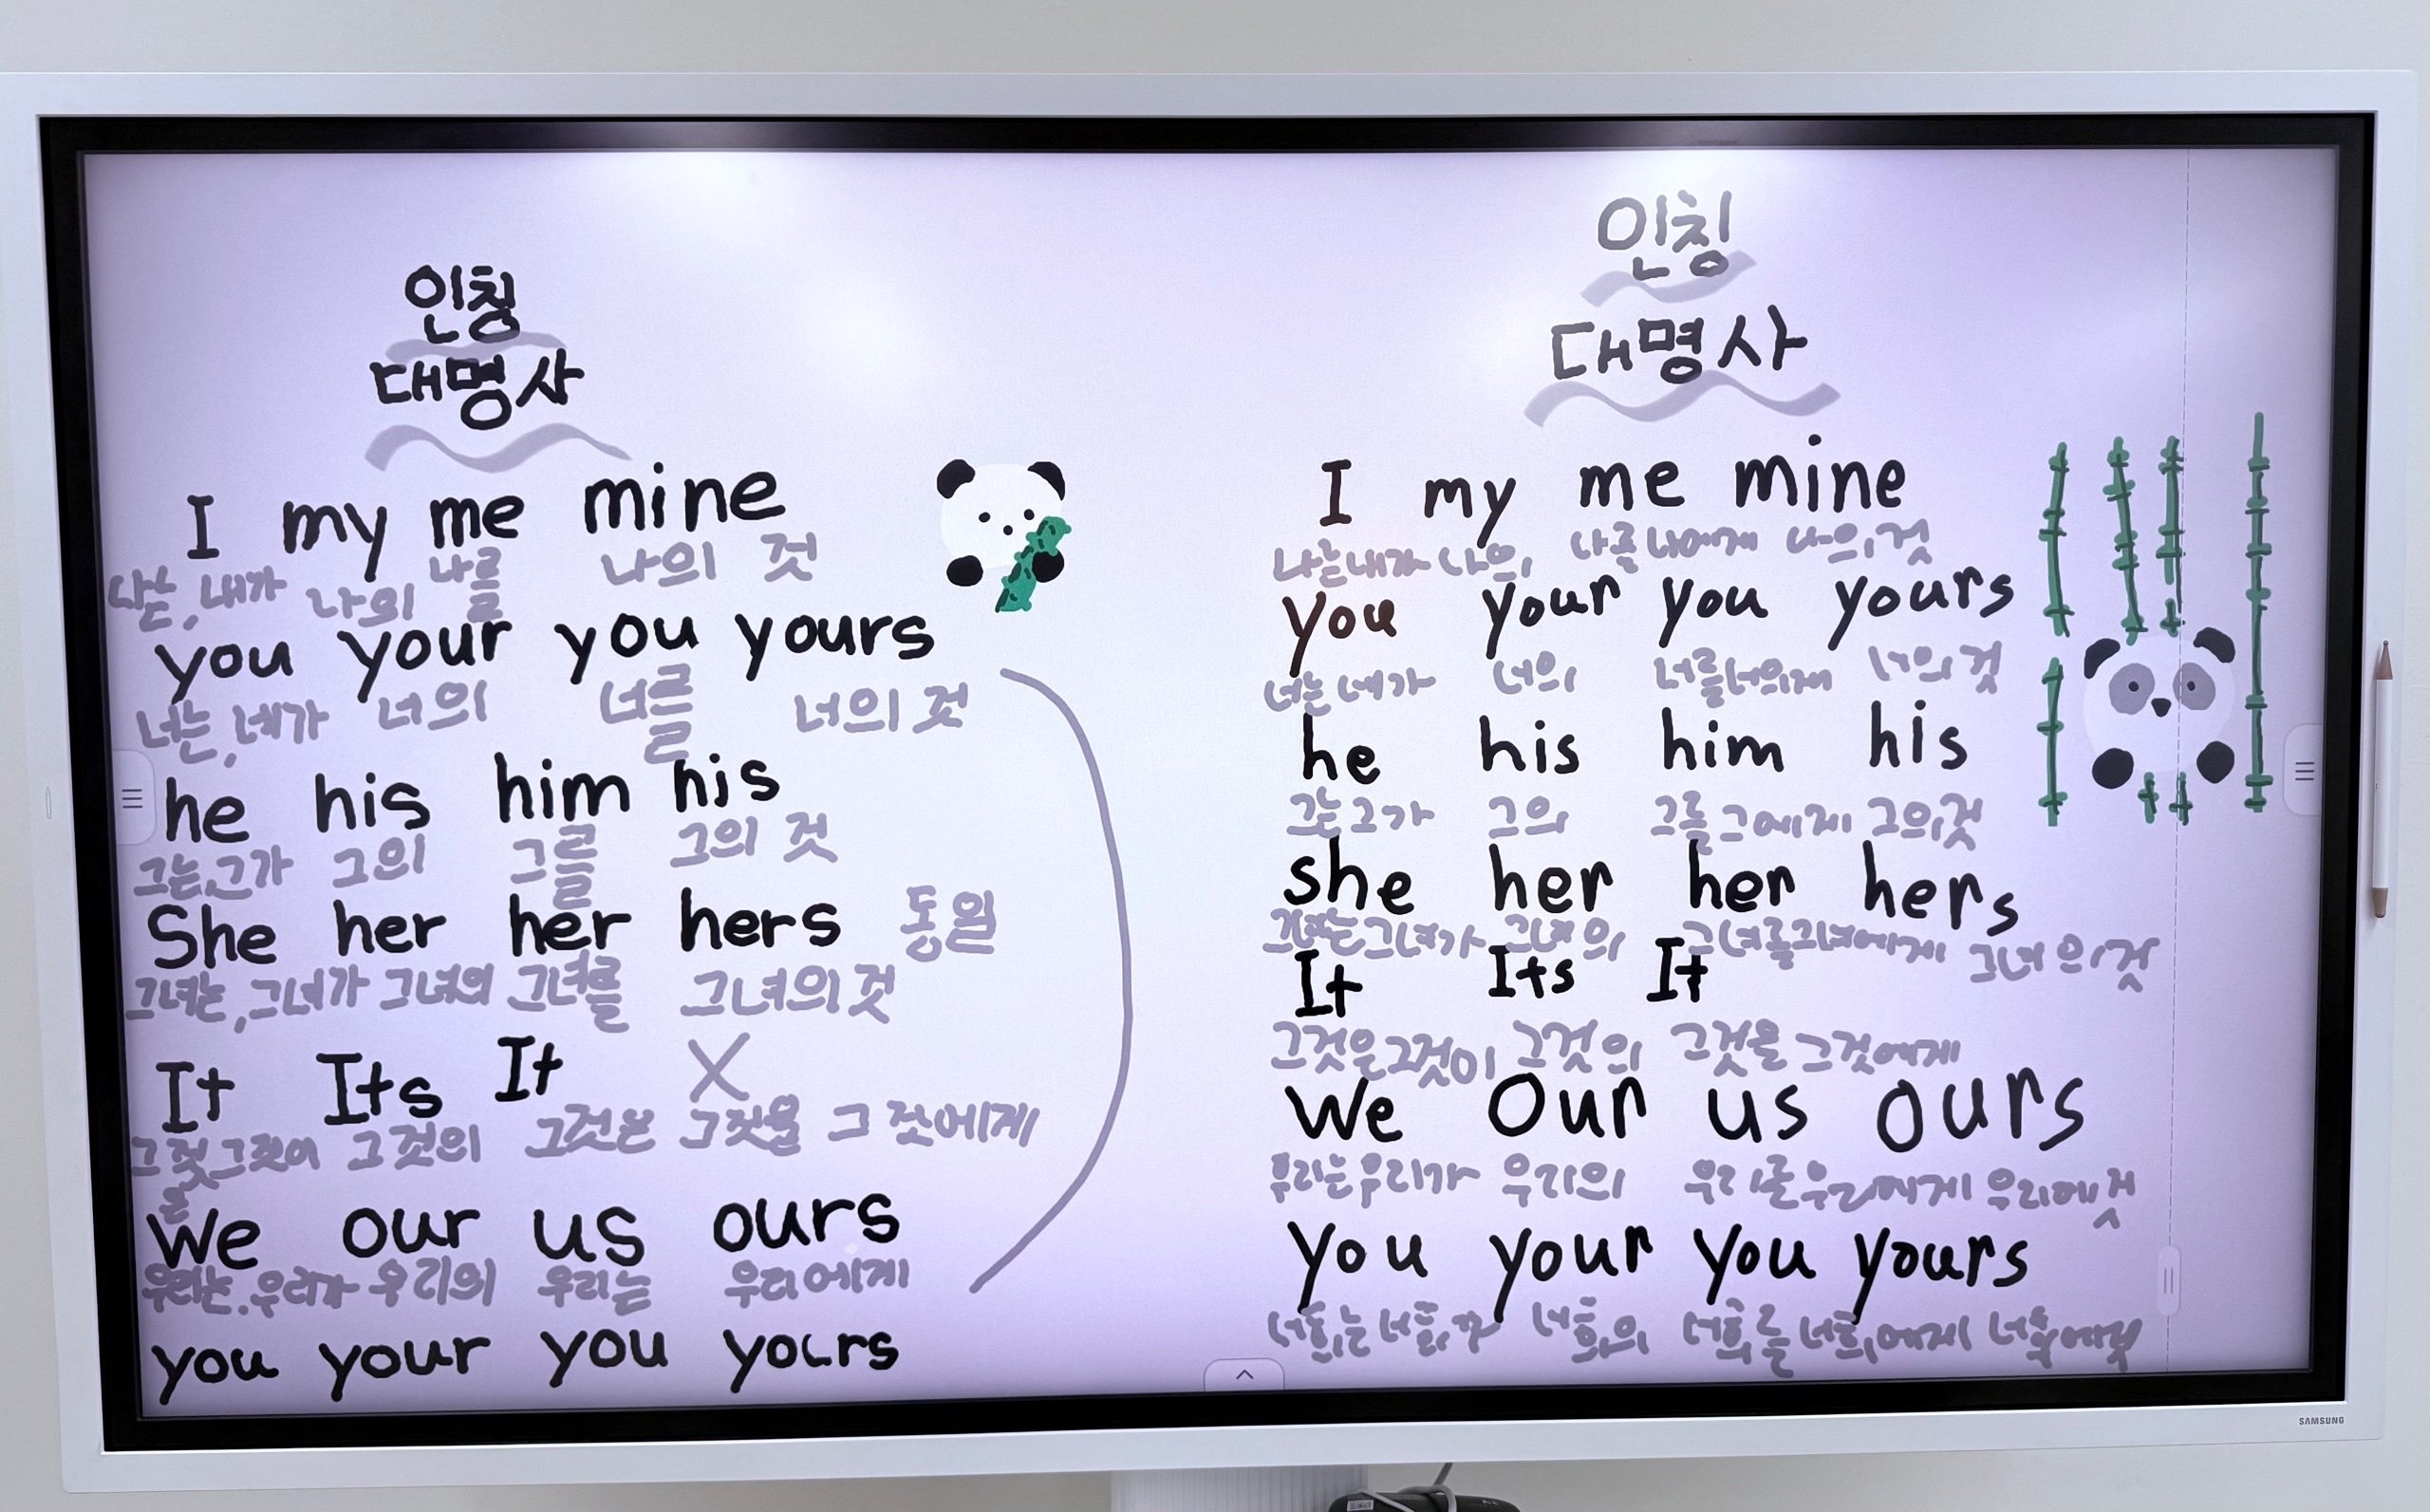 인칭
대명사
I my me mine
나는, 내가 나의 나를 나의 것
you your you yours
너는, 네가 너의 너를 너의 것
he his him his
그는, 그가 그의 그를 그의 것
She her her hers 동일
그녀는, 그녀가 그녀의 그녀를 그녀의 것
It Its It X
그것 그것이 그것의 그것은 그것을 그것에게
은
We our us ours
우리는, 우리가 우리의 우리는 우리에게
you your you yours
인칭
대명사
I my me mine
나는 내가 나의 나를 나에게 나의 것
you your you yours
너는 네가 너의 너를 너의게 너의 것
he his him his
그는 그가 그의 그를 그에게 그의것
she her her hers
그녀는 그녀가 그녀의 그녀를 그녀에게 그녀의 것
It Its It
그것은 그것이 그것의 그것을 그것에게
We Our us ours
우리는 우리가 우리의 우리를 우리에게 우리에 것
you your you yours
너희는 너희가 너희의 너희를 너희에게
SAMSUNG